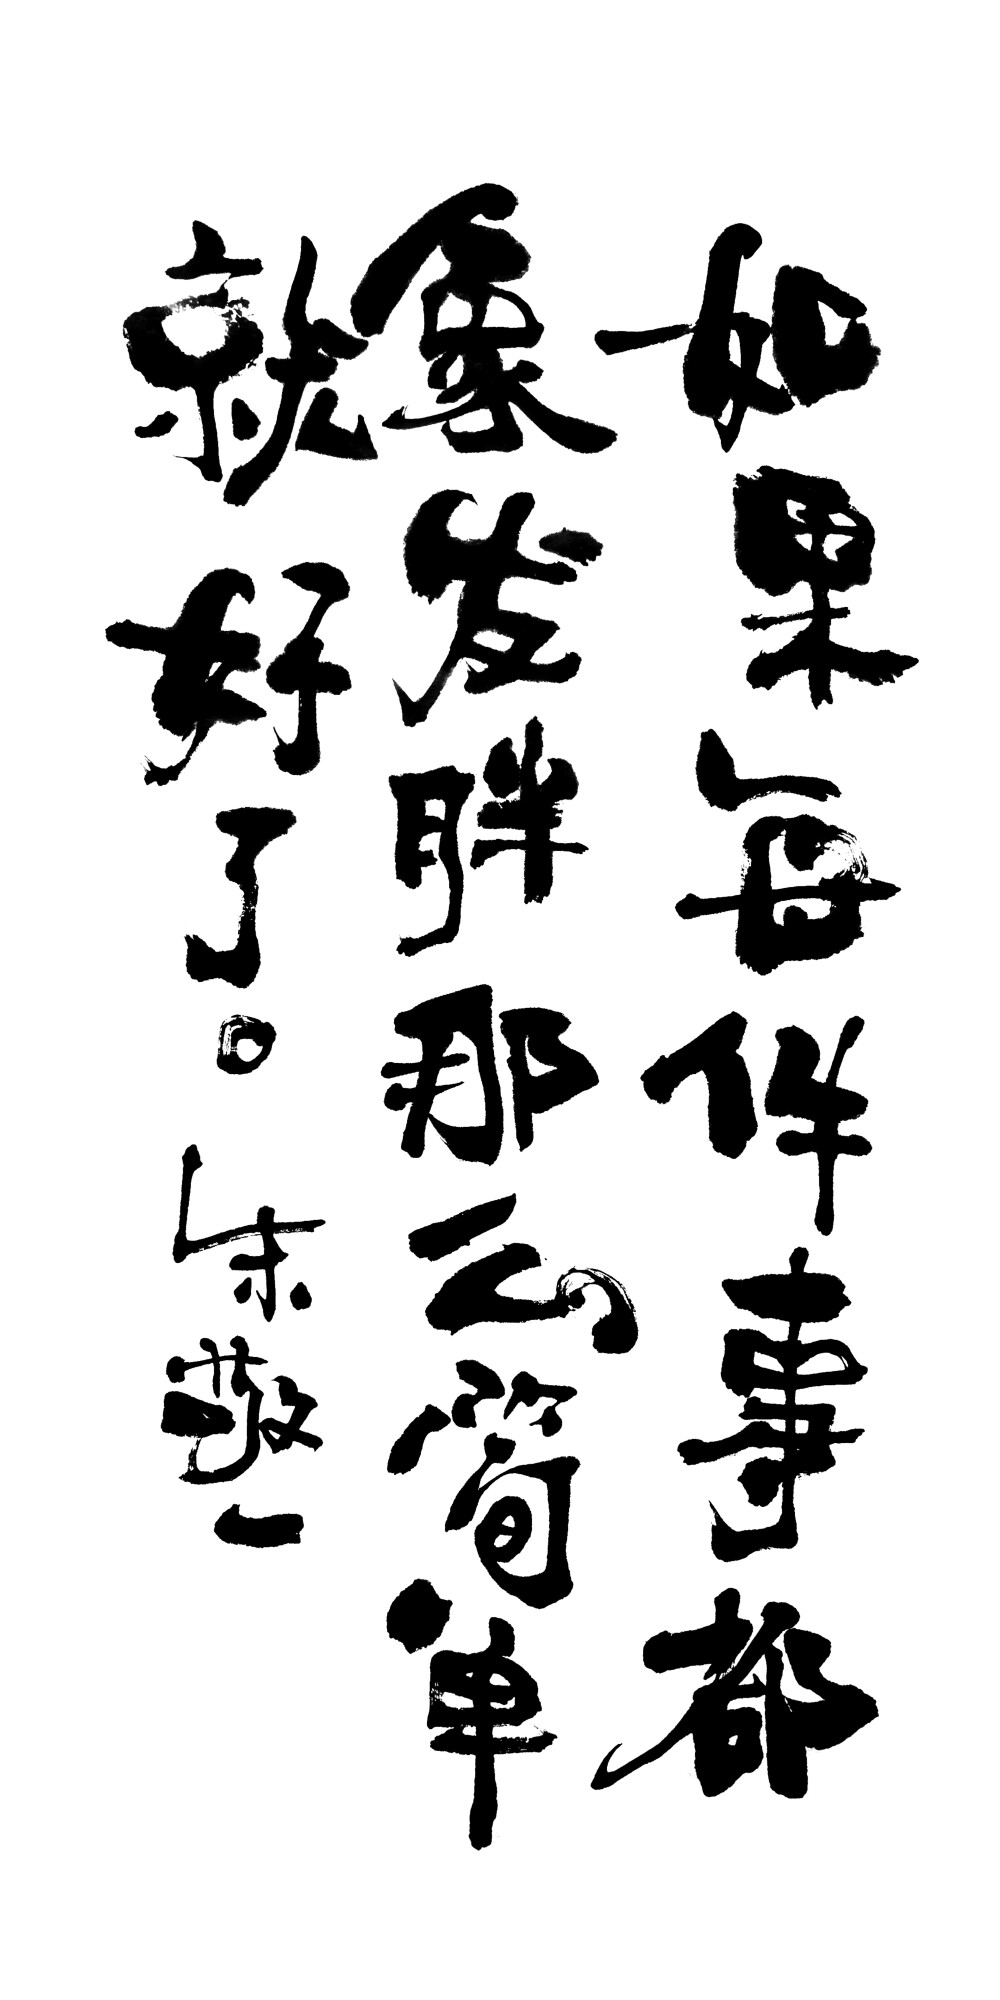 如果每件事都
象发胖那么简单
就好了。朱敬一